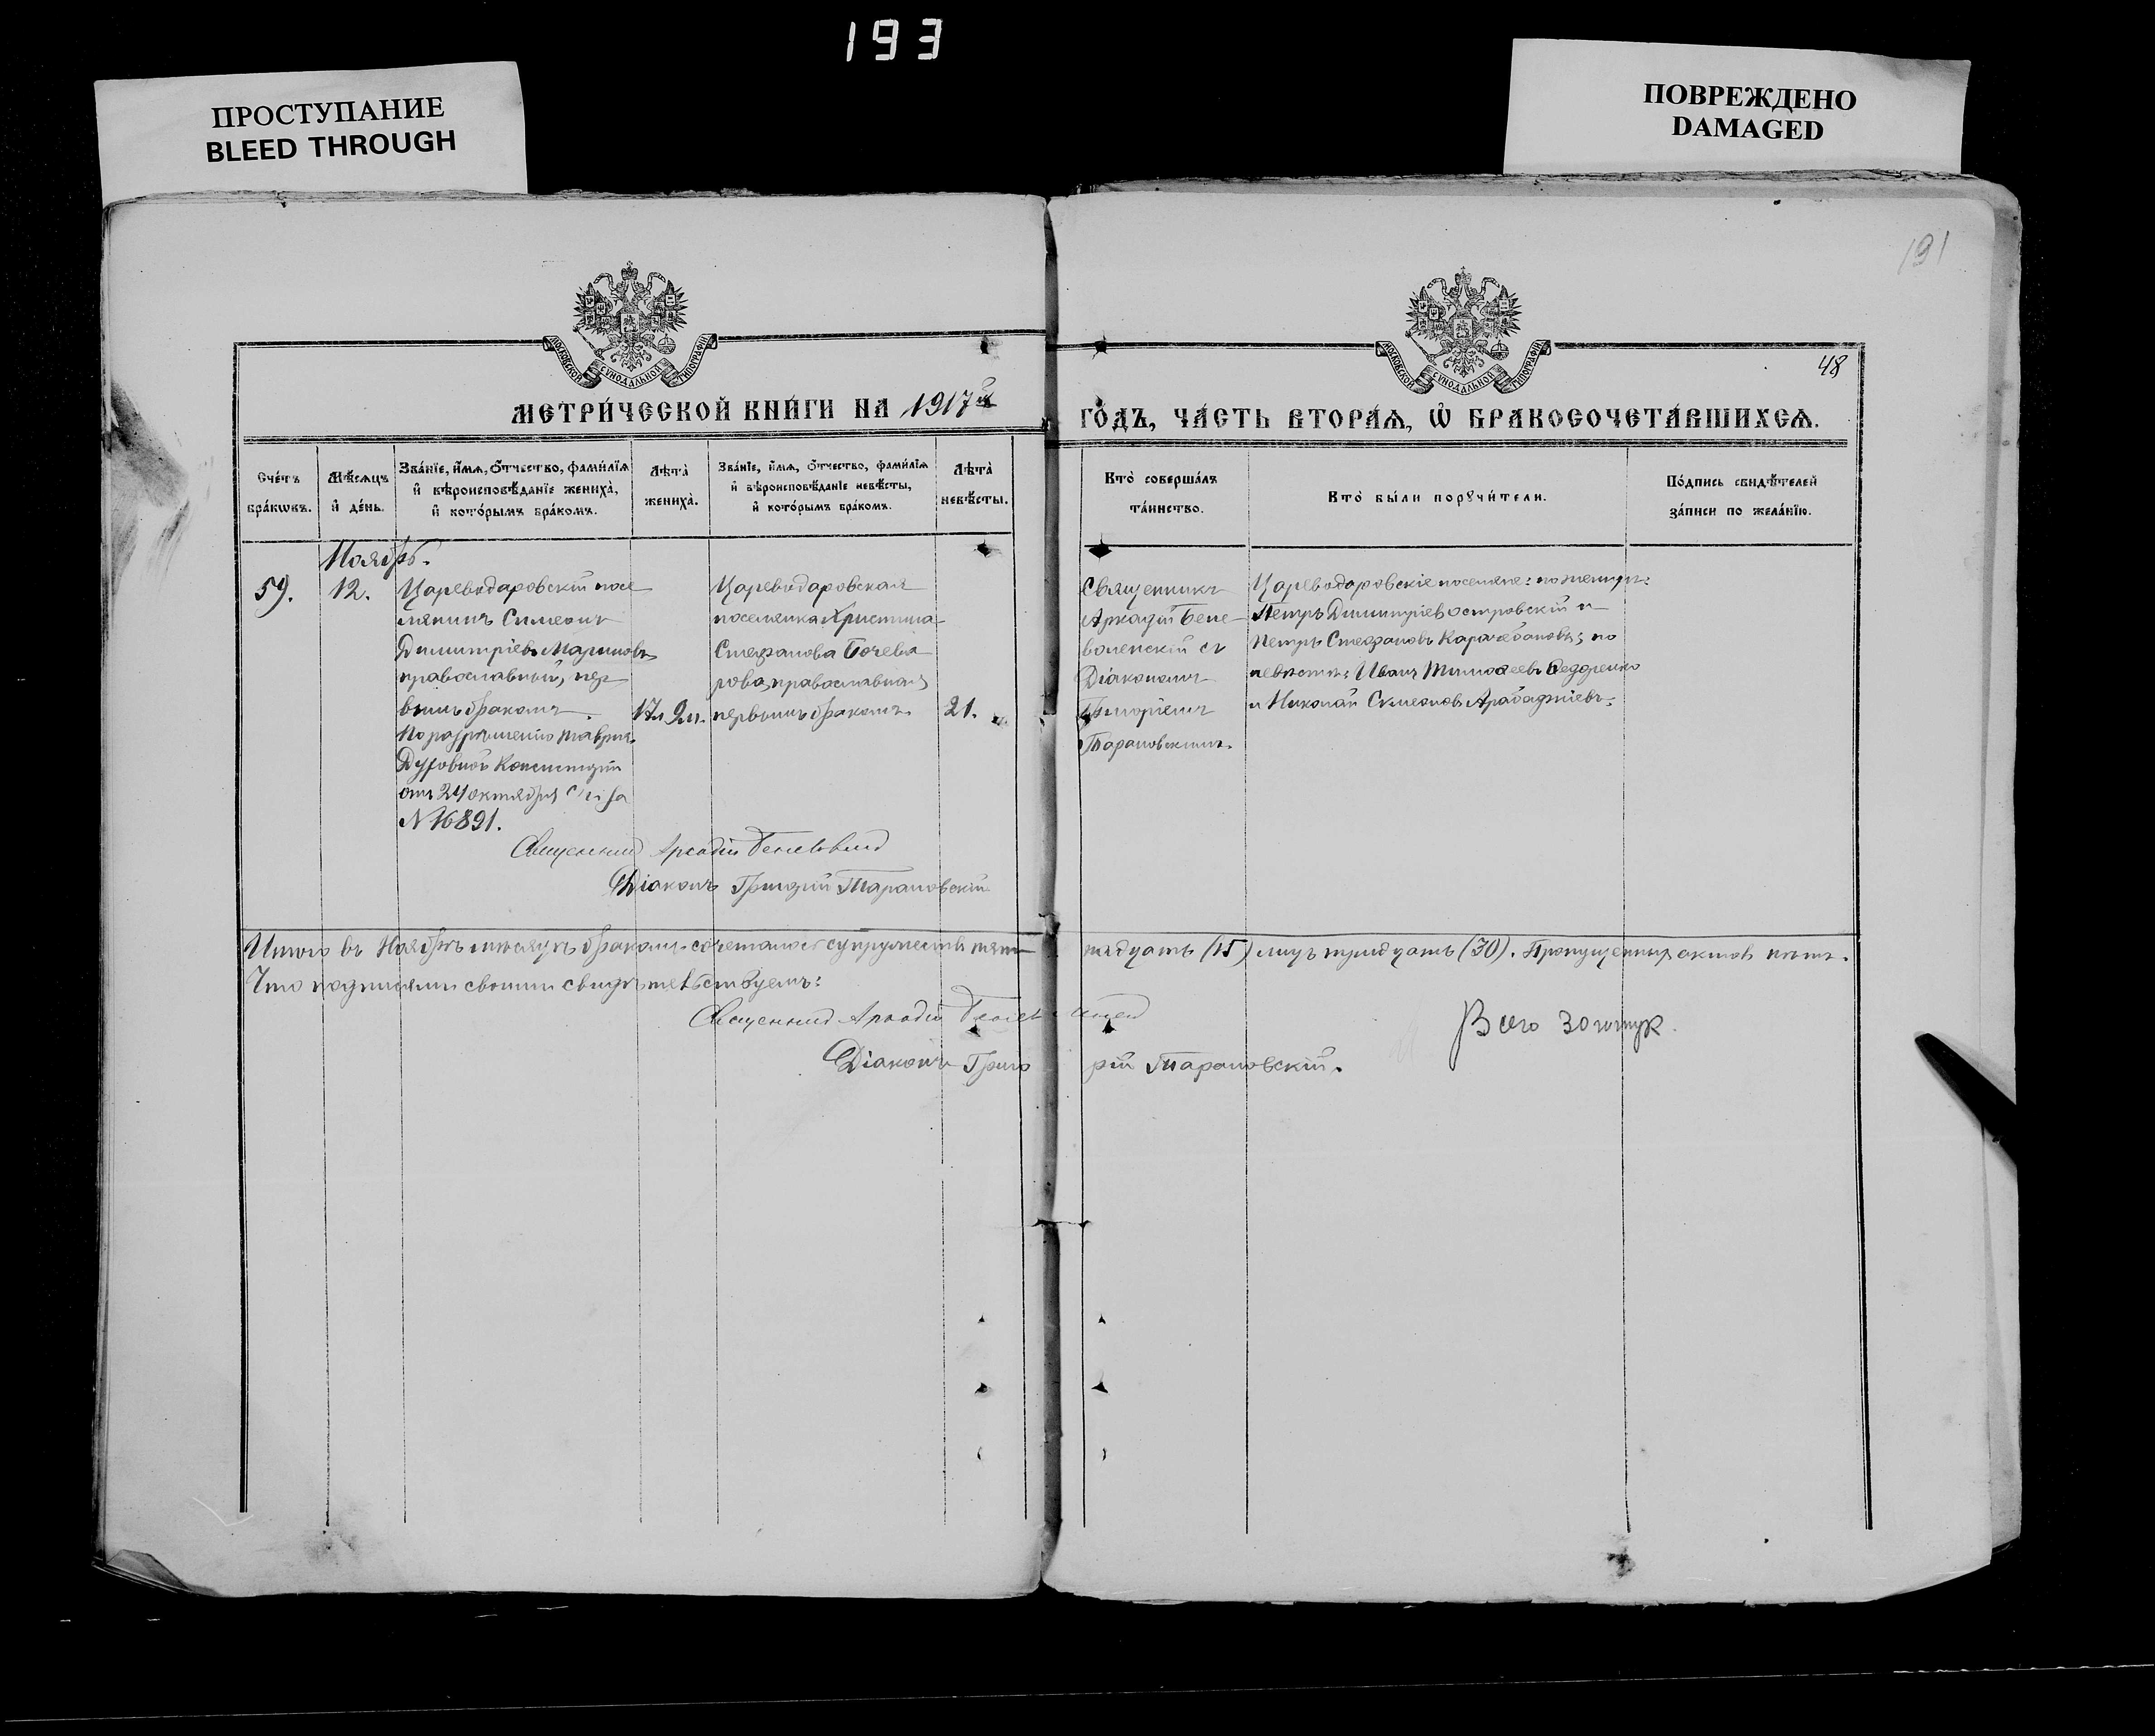 193
ПРОСТУПАНИЕ
BLEED THROUGH
ПОВРЕЖДЕНО
DAMAGED
191
48
МОСКОВСКОЙ СѴНОДАЛЬНОЙ ТИПОГРАФІИ
МОСКОВСКОЙ СѴНОДАЛЬНОЙ ТИПОГРАФІИ
МЕТРИ́ЧЕСКОЙ КНИ́ГИ НА 1917й
ГО́ДЪ, ЧА́СТЬ ВТОРА́Ѧ, Ѡ҆ БРАКОСОЧЕТА́ВШИХСѦ.
Сче́тъ
бра́кѡвъ.
Мѣ́сѧцъ
и҆ де́нь.
Зва́нїе, и҆́мѧ, ѻ҆́тчество, фами́лїѧ
и҆ вѣроисповѣ́данїе жениха̀,
и҆ кото́рымъ бра́комъ.
Лѣ́та̀
жениха̀.
Зва́нїе, и҆́мѧ, ѻ҆́тчество, фами́лїѧ
и҆ вѣроисповѣ́данїе невѣ́сты,
и҆ кото́рымъ бра́комъ.
Лѣ́та̀
невѣ́сты.
Кто̀ соверша́лъ
та́инство.
Кто̀ бы́ли порꙋчи́тели.
По́дпись свидѣ́телей
за́писи по жела́нїю.
Ноябрь.
59.
12.
Цареводаровскій посе
лянинъ Симеонъ
Димитріевъ Мариновъ
православный, пер
вымъ бракомъ.
По разрѣшенію Таврич.
Духовной Консисторіи
отъ 24 октября с/г за
№ 16891.
17л 9м.
Цареводаровская
поселянка Христина
Стефанова Бочева
рова, православная,
первымъ бракомъ.
21.
Священникъ
Аркадій Бене-
воленскій съ
Діакономъ
Григоріемъ
Тарановскимъ.
Цареводаровскіе поселяне: по женихѣ:
Петръ Димитріевъ Островскій и
Петръ Стефановъ Карачебановъ; по
невѣстѣ: Иванъ Тимофеевъ Федоренко
и Николай Симеоновъ Арабаджіевъ.
Священникъ Аркадій
Діаконъ Григорій Тарановскій
Итого въ Ноябрѣ мѣсяцѣ бракомъ сочеталось супружествъ пят-
надцать (15) лицъ тридцать (30). Пропущенныхъ актовъ нѣтъ.
Что подписями своими свидѣтельствуемъ:
Священникъ Аркадій
Діаконъ Григорій Тарановскій.
Всего 30